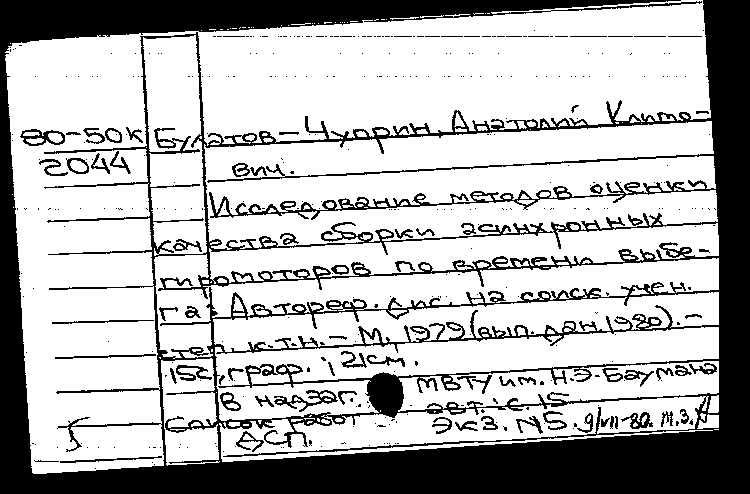 80-50к Булатов-Чудрин, Анатолий Климо-
2044 вич.
Исследование методов оценки
качества сборки асинхронных
гиромоторов по времени выбе-
га: Автореф. дис. на соиск. учен.
степ. к.т.н. - М., 1979 (вып. дан. 1980). -
15с., граф.; 21см.
В надзаг. МВТУ им. Н.Э. Баумана
Список работ авт.: с. 15
ДСП. Экз. №5. 9/VII-80. М.З.